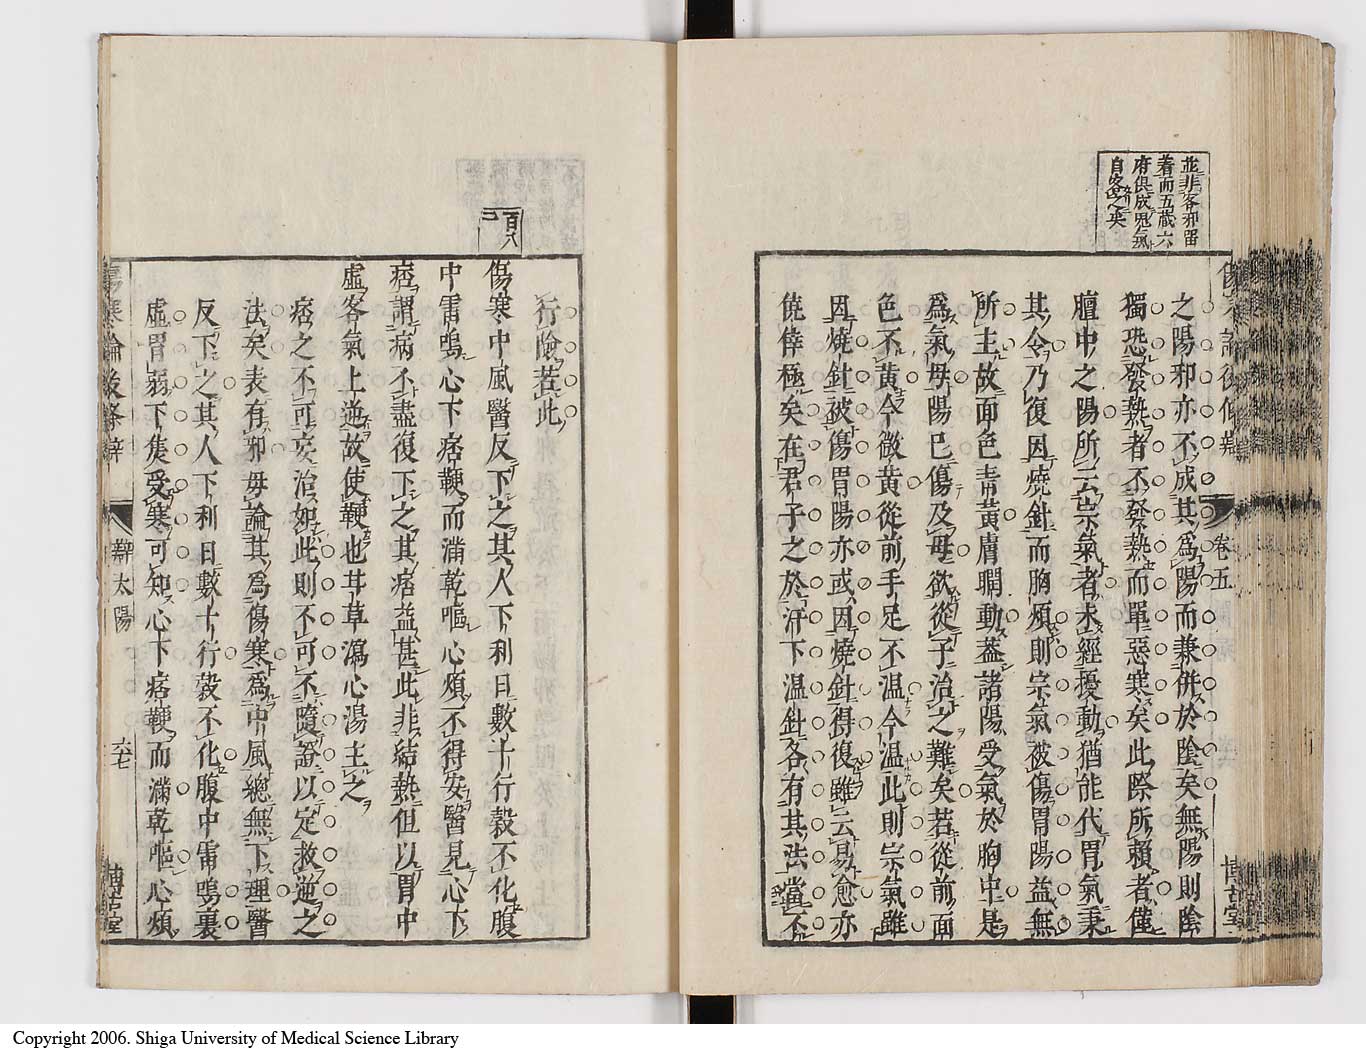 並非客邪留
着而五藏六
府俱成冤氣
自客之矣
之陽邪亦不成其爲陽而兼併於陰矣無陽則陰
獨恐發熱者不發熱而單惡寒矣此際所賴者僅
膻中之陽所云宗氣者未經擾動猶能代胃氣秉
其令乃復因燒針而胸煩則宗氣被傷胃陽益無
所主故面色青黃膚瞤動蓋諸陽受氣於胸中是
爲氣母陽已傷及母欲從子治之難矣若從前面
色不黃今微黃從前手足不溫今溫此則宗氣雖
因燒針被傷胃陽亦或因燒針得復雖云易愈亦
僥倖極矣在君子之於汗下溫針各有其法當不
卷五
博古堂
行險若此
百八
傷寒中風醫反下之其人下利日數十行穀不化腹
中雷鳴心下痞鞕而滿乾嘔心煩不得安醫見心下
痞謂病不盡復下之其痞益甚此非結熱但以胃中
虛客氣上逆故使鞕也甘草瀉心湯主之
痞之不可妄治如此則不可不隨證以定救逆之
法矣表有邪毋論其爲傷寒爲中風總無下理醫
反下之其人下利日數十行穀不化腹中雷鳴裏
虛胃弱下集受寒可知心下痞鞕而滿乾嘔心煩
傷寒論後條辨
辨太陽
六七
博古堂
Copyright 2006. Shiga University of Medical Science Library